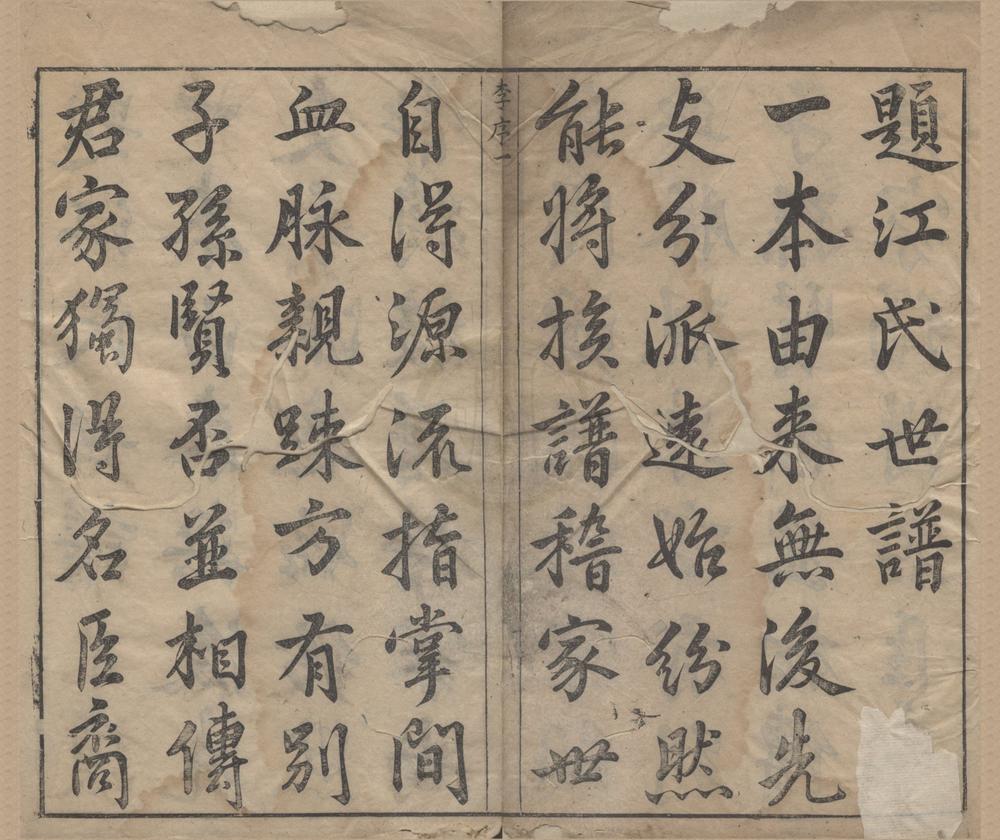 題江氏世譜
一本由来無後先
支分派遠始紛然
能將挨譜稽家世
李序一
自得源流指掌間
血脉親踈方有別
子孫賢否並相傳
君家獨得名臣裔